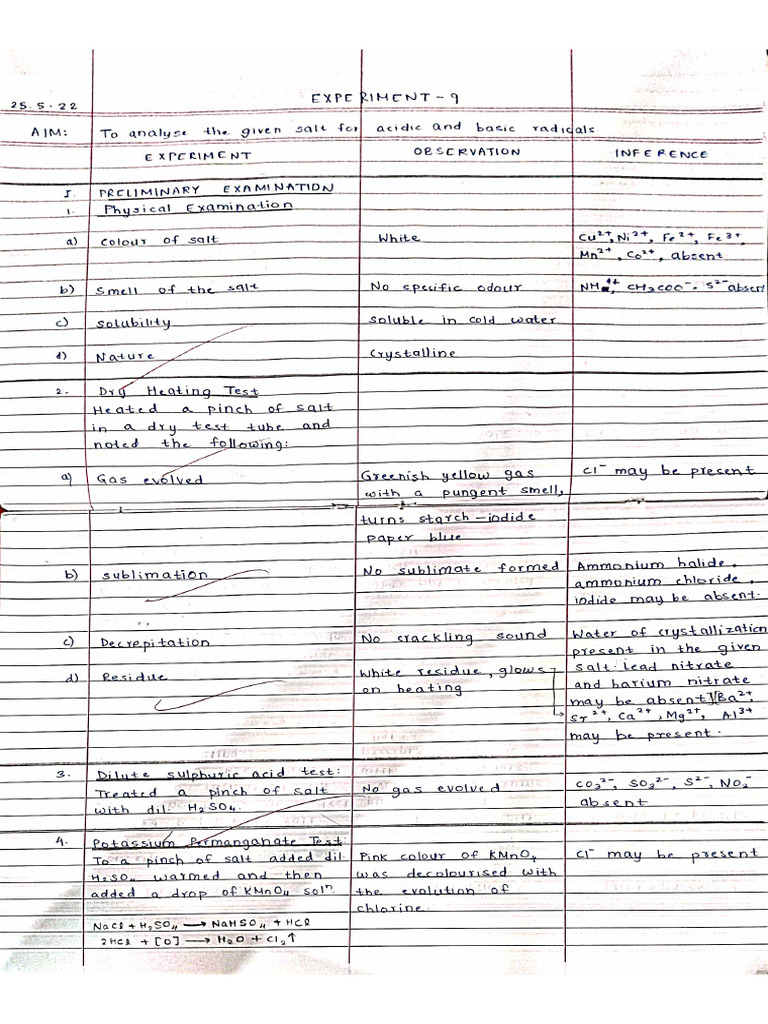 25.5.22
EXPERIMENT - 9
AIM: To analyse the given salt for acidic and basic radicals
EXPERIMENT
OBSERVATION
INFERENCE
I. PRELIMINARY EXAMINATION
1. Physical Examination
a) Colour of salt
White
Cu²⁺, Ni²⁺, Fe²⁺, Fe³⁺
Mn²⁺, Co²⁺, absent
b) Smell of the salt
No specific odour
c) Solubility
Soluble in cold water
d) Nature
Crystalline
2. Dry Heating Test
Heated a pinch of salt
in a dry test tube and
noted the following:
a) Gas evolved
Greenish yellow gas
with a pungent smell,
turns starch-iodide
paper blue
Cl⁻ may be present
b) sublimation
No sublimate formed
Ammonium halide,
ammonium chloride,
iodide may be absent.
c) Decrepitation
No crackling sound
Water of crystallization
present in the given
salt. lead nitrate
and barium nitrate
may be absent
d) Residue
White residue, glows
on heating
Ba²⁺,
Sr²⁺, Ca²⁺, Mg²⁺, Al³⁺
may be present.
3. Dilute sulphuric acid test:
Treated a pinch of salt
with dil. H₂SO₄.
No gas evolved
CO₃²⁻, SO₃²⁻, S²⁻, NO₂⁻
absent
4. Potassium Permanganate Test
To a pinch of salt added dil.
H₂SO₄ warmed and then
added a drop of KMnO₄ solⁿ.
NaCl + H₂SO₄ → NaHSO₄ + HCl
2HCl + [O] → H₂O + Cl₂↑
Pink colour of KMnO₄
was decolourised with
the evolution of
chlorine.
Cl⁻ may be present